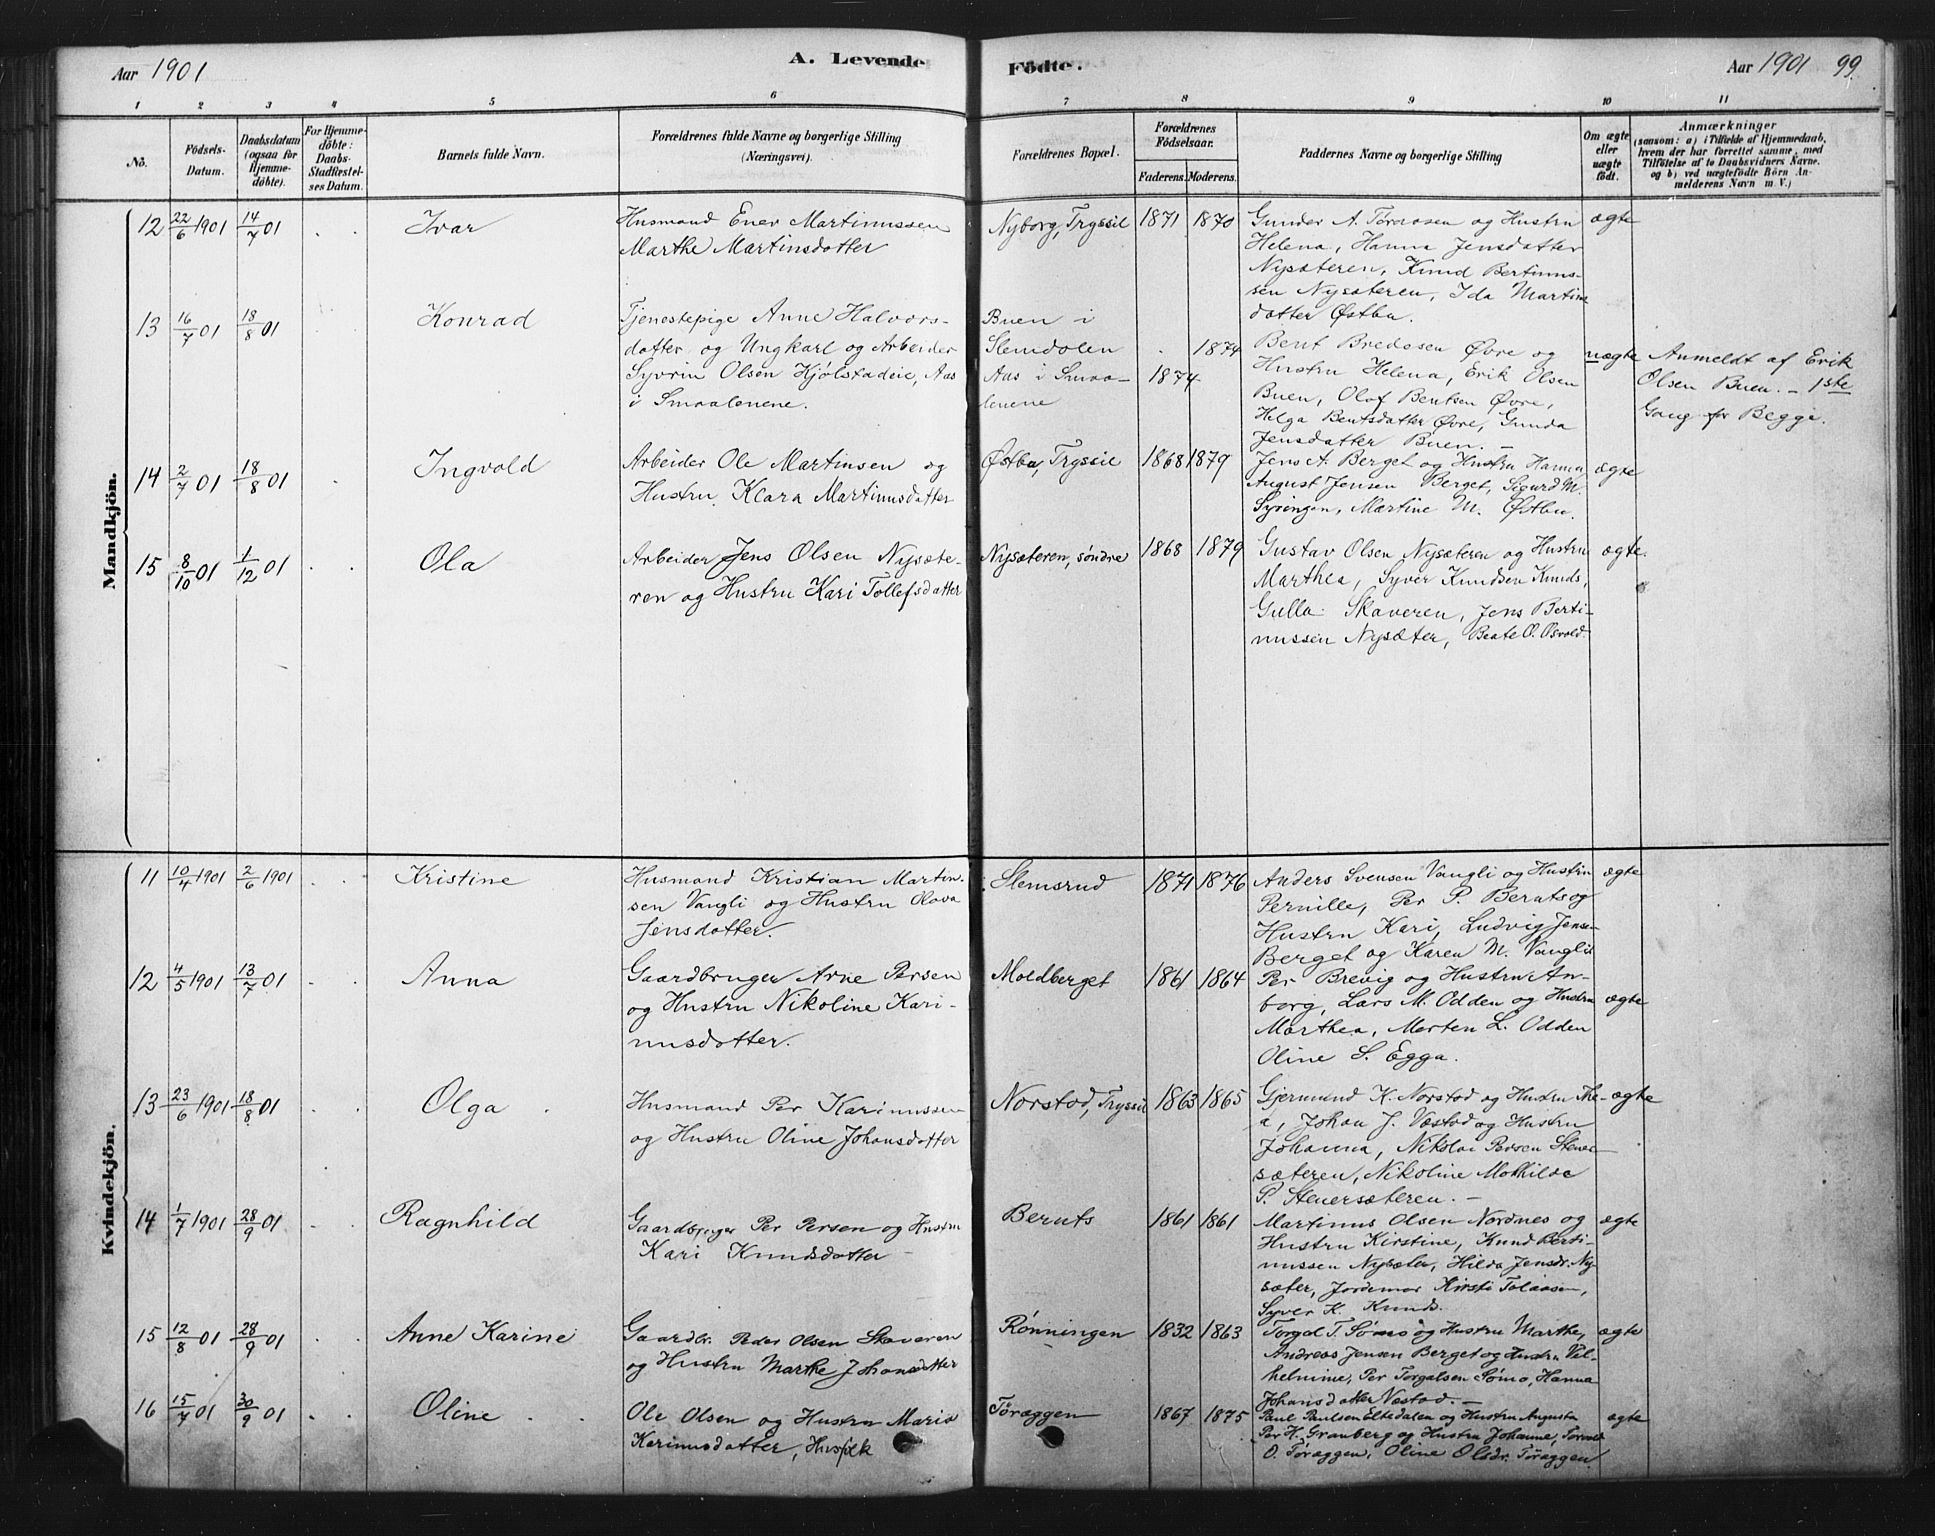 Aar 1901
A. Levende Födte.
Aar 1901 99.
1 2 3 4 5 6 7 8 9 10 11
No.
Födsels-Datum.
Daabsdatum (ogsaa for Hjemmedöbte).
For Hjemmedöbte: Daabs-Stadfæstelses Datum.
Barnets fulde Navn.
Forældrenes fulde Navne og borgerlige Stilling (Næringsvei).
Forældrenes Bopæl.
Forældrenes Födselsaar.
Faderens. Moderens.
Faddernes Navne og borgerlige Stilling
Om ægte eller uægte födt.
Anmærkninger
(saasom: a) i Tilfælde af Hjemmedaab, hvem der har forrettet samme, med Tilföielse af to Daabsvidners Navne, og b) ved uægtefödte Börn Anmelderens Navn m. V.)
Mandkjön.
12 22/6 1901 14/7 01 Ivar
Husmand Ener Martinussen
Marthe Martinsdatter
Nyborg, Trysil 1871 1870
Gunder A. og Hustru
Helena, Hanna Jensdatter
Nysæteren, Knud Bertinus-
sen Nysæteren, Ida Martins
datter Østbu.
ægte
13 16/7 01 18/8 01 Konrad
Tjenestepige Anne Halvors-
datter og Ungkarl og Arbeider
Syvrin Olsen Hjølstadeie, Aas
i Smaalenene.
Buen i
Slemdalen
Aas i Smaa-
lenene
. 1874
1874
Bent Bredesen Øvre og
Hustru Helena, Erik Olsen
Buen, Olaf Bentsen Øvre,
Helga Bentsdatter Øvre, Gunda
Jensdatter Buen. –
uægte
Anmeldt af Erik
Olsen Buen. – 1ste
Gang for Begge.
14 2/7 01 18/8 01 Ingvald
Arbeider Ole Martinsen og
Hustru Klara Martinusdatter
Østbu, Trysil 1868 1879
Jens A. Berget og Hustru Hanna
August Jensen Berget, Sigurd M.
Syringen, Martine M. Østbu.
ægte
15 8/10 01 1/12 01 Ola
Arbeider Jens Olsen Nysæte-
ren og Hustru Kari Tollefsdatter
Nysæteren, søndre 1868 1879
Gustav Olsen Nysæteren og Hustru
Marthea, Syver Knudsen Knuds,
Gulla Skaveren, Jens Berti-
nussen Nysæter, Beate O. Osvold.
ægte.
Kvindekjön.
11 10/4 1901 2/6 1901 Kristine
Husmand Kristian Martin-
sen Vangli og Hustru Olava
Jensdatter.
Slemsrud 1871 1876
Anders Svensen Vangli og Hustru
Pernille, Per P. Beruts og
Hustru Kari, Ludvig Jensen
Berget og Karen M. Vangli
ægte
12 4/5 1901 13/7 01 Anna
Gaardbruger Arne Persen
og Hustru Nikoline Kari-
nusdatter.
Moldberget 1861 1864
Per Brevig og Hustru An-
borg, Lars M. Odden og Hustru
Marthea, Morten L. Odden
Oline S. Egga.
ægte
13 23/6 1901 18/8 01 Olga
Husmand Per Karinussen
og Hustru Oline Johansdatter
Norstad, Trysil 1863 1865
Gjermund K. Norstad og Hustru The-
a, Johan J. Væstad og Hustru
Johanna, Nikolai Persen Stener-
sæteren, Nikoline Mathilde
P. Stenersæteren. –
ægte
14 1/7 1901 28/9 01 Ragnhild
Gaardbruger Per Persen og Hustru
Kari Knudsdatter –
Beruts 1861 1861
Martinus Olsen Nordnes og
Hustru Kirstine, Knud Berti-
nussen Nysæter, Hilda Jensdr. Ny-
sæter, Jordemor Kirsti Tolaasen,
Syver K. Knuds.
ægte
15 12/8 01 28/9 01 Anne Karine
Gaardbr. Peder Olsen Skaveren
og Hustru Marthe Johansdatter
Rønningen 1832 1863
Torgal T. Sømo og Hustru Marthe,
Andreas Jensen Berget og Hustru Vil-
helmine, Per Torgalsen Sømo, Hanna
Johansdatter Næstad. –
ægte
16 15/7 01 30/9 01 Oline
Ole Olsen og Hustru Maria
Karinusdatter, Husfolk
Tøræggen 1867 1875
Paul Paulsen Eltedalen og Hustru Augusta
Per H. Granberg og Hustru Johanne, Torvald
O. Tøræggen, Oline Olsdr. Tøræggen.
ægte